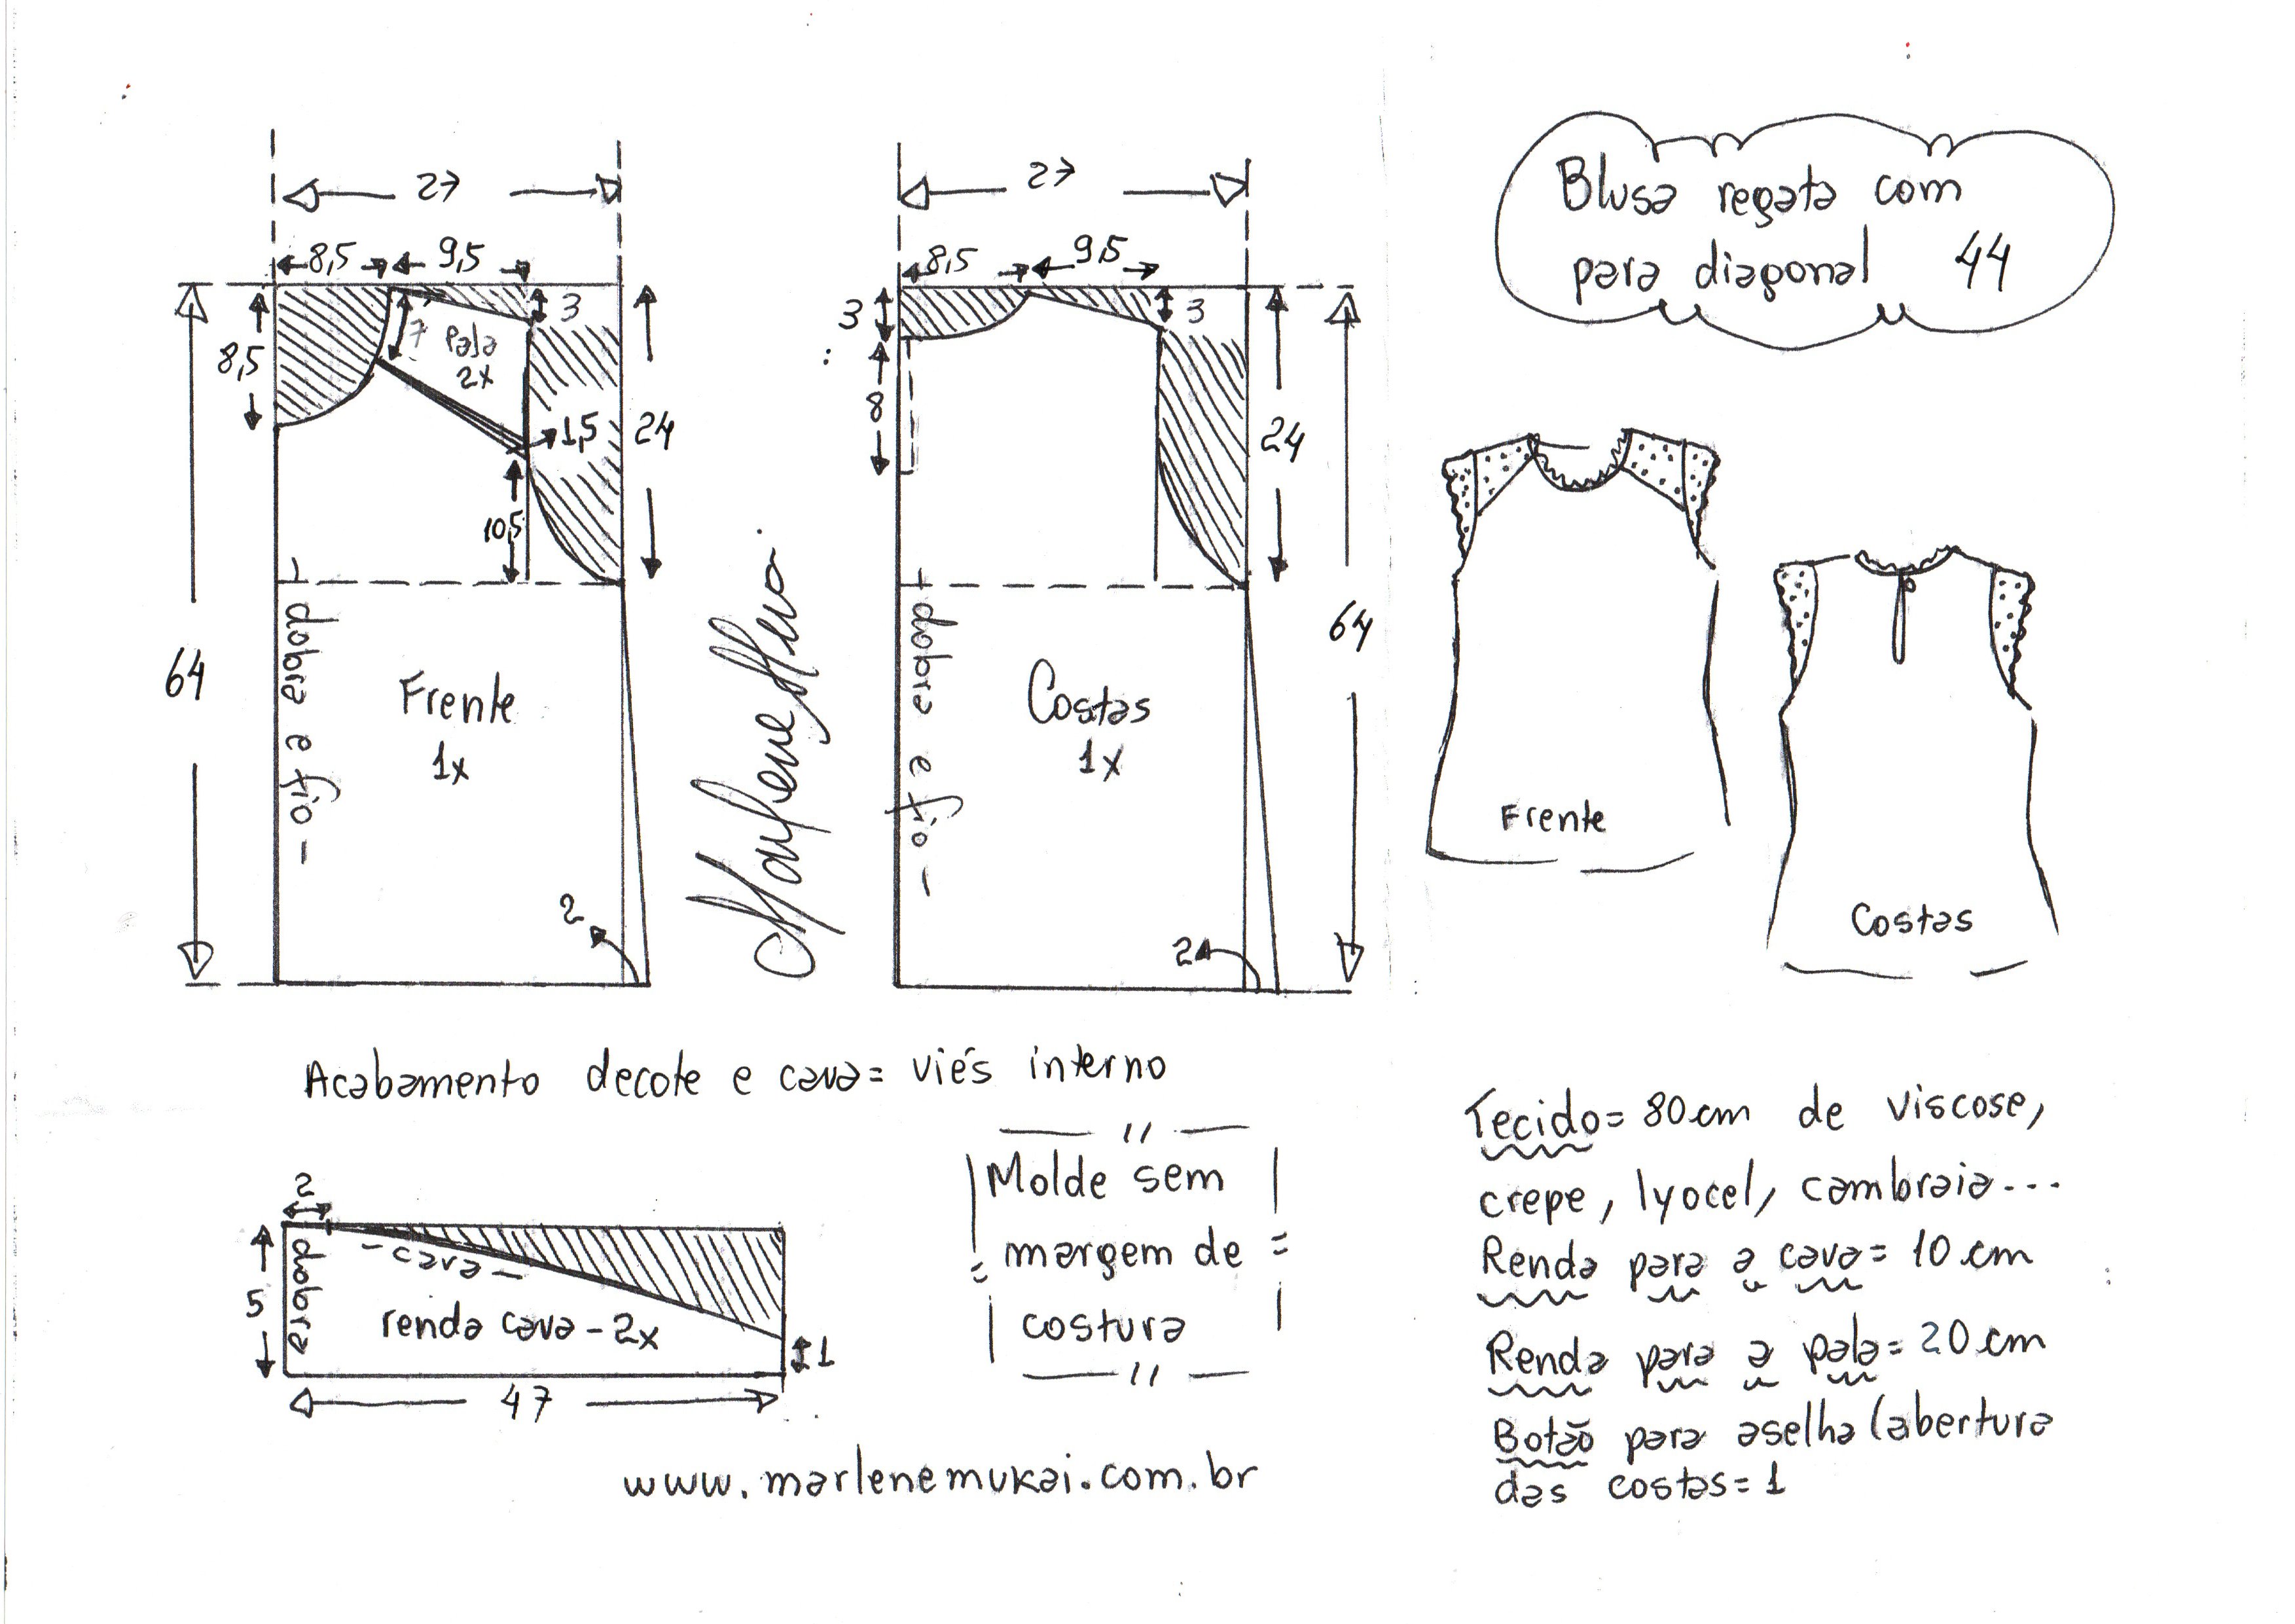 27
8,5 9,5
3
8,5
7
Pala
2x
1,5
24
10,5
64
dobra e fio
Frente
1x
2
27
8,5 9,5
3
3
8
24
64
dobra e fio
Costas
1x
2
Blusa regata com
para diagonal 44
Frente
Costas
Acabamento decote e cava= viés interno
2
5
dobra
- cava -
renda cava - 2x
1
47
Molde sem
margem de
costura
www.marlenemukai.com.br
Tecido= 80cm de viscose,
crepe, lyocel, cambraia...
Renda para a cava= 10 cm
Renda para a pala= 20 cm
Botão para aselha (abertura
das costas= 1